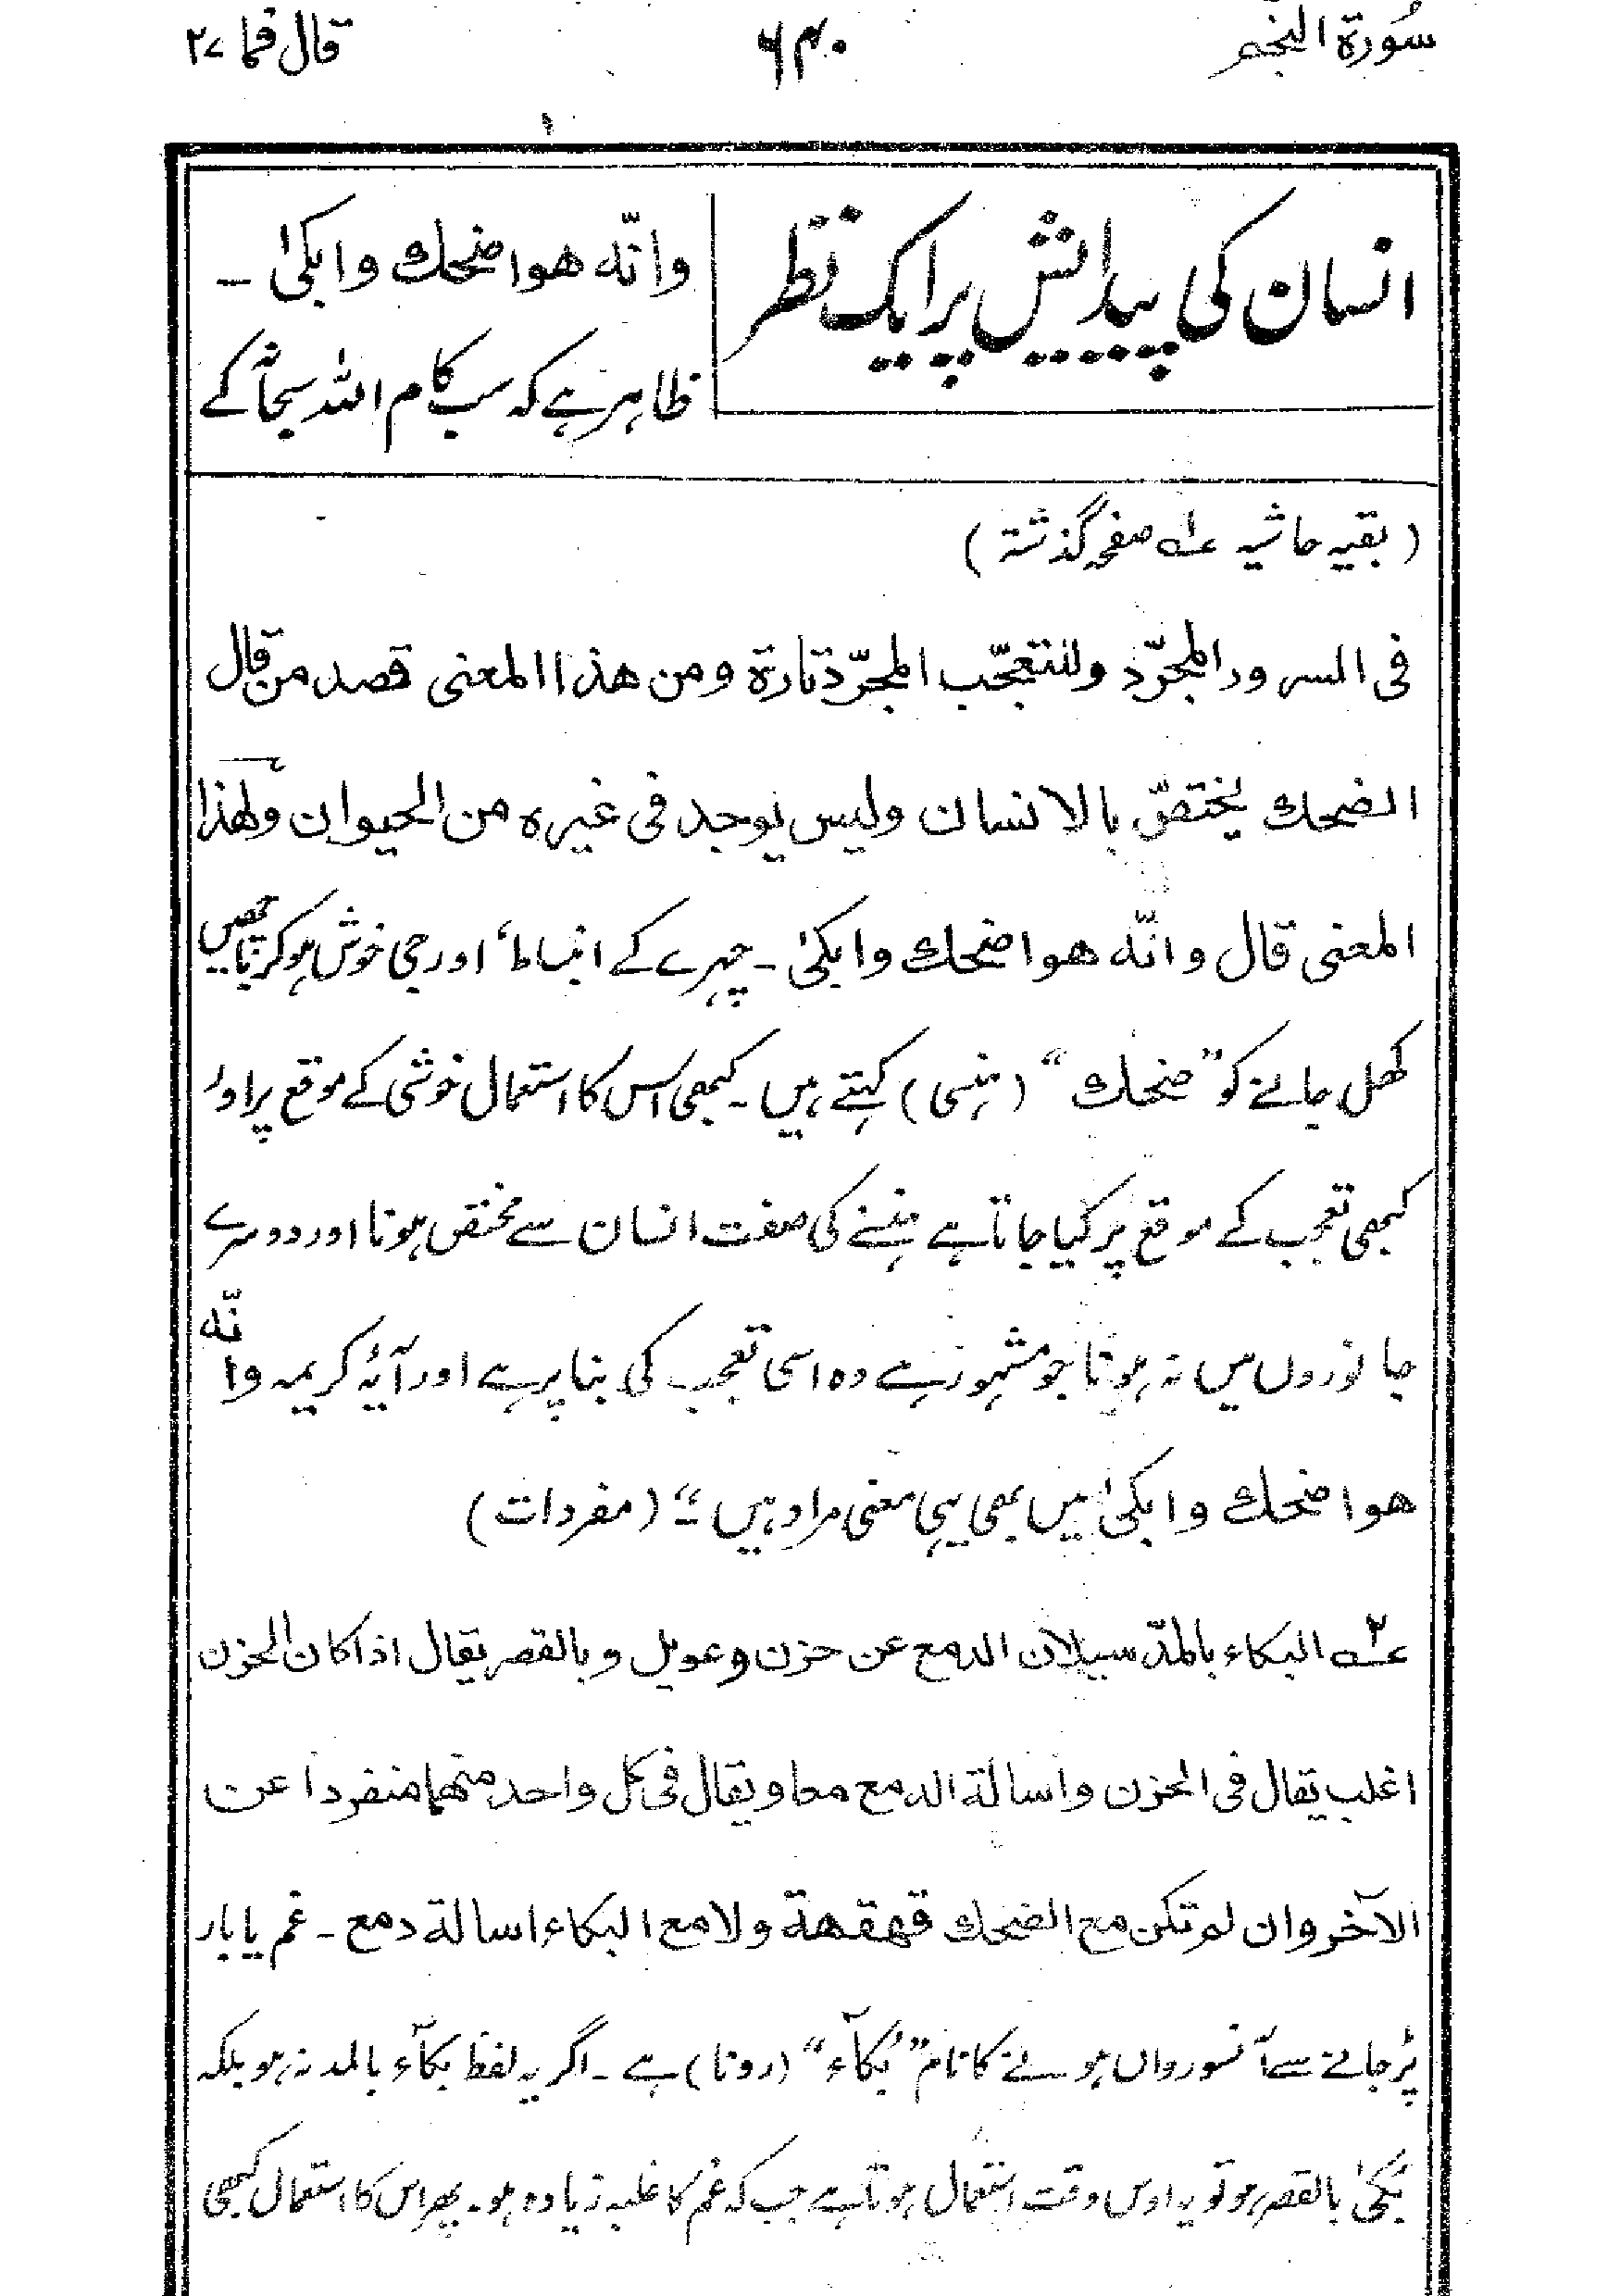 سُورة النجم
۶۴۰
قال فما ۲۷
انسان کی پیدائش پر ایک نظر
وانّه هو اضحك وابکیٰ ۔
ظاہر ہے کہ سب کام اللہ سبحانہٗ کے
( بقیہ حاشیہ عــہ۱ صفحہ گذشتہ )
فی السرور المجرّد وللتعجّب المجرّد تارة ومن هذا المعنی قصد من قال
الضحك یختصّ بالانسان ولیس یوجد فی غیره من الحیوان ولهذا
المعنی قال وانّه هو اضحك وابکیٰ ۔ چہرے کے انبساط، اور جی خوش ہو کر باچھیں
کھل جانے کو ”ضحك“ ( ہنسی ) کہتے ہیں ۔ کبھی اس کا استعمال خوشی کے موقع پر اور
کبھی تعجب کے موقع پر کیا جاتا ہے ہنسنے کی صفت انسان سے مختص ہونا اور دوسرے
جانوروں میں نہ ہونا جو مشہور ہے وہ اسی تعجب کی بنا پر ہے اور آیۂ کریمہ وانّه
هو اضحك وابکیٰ میں بھی یہی معنی مراد ہیں ۔“ ( مفردات )
عــہ۲ البکاء بالمدّ سیلان الدمع عن حزن وعویل وبالقصر یقال اذا کان الحزن
اغلب یقال فی الحزن واسالة الدمع معا ویقال فی کل واحد منهما منفردا عن
الآخر وان لم تکن مع الضحك قهقهة ولا مع البکاء اسالة دمع ۔ غم یا بار
پڑ جانے سے آنسو رواں ہونے کا نام ”بُکآء“ (رونا) ہے ۔ اگر یہ لفظ بکآء بالمد نہ ہو بلکہ
بُکیٰ بالقصر ہو تو یہ اوس وقت استعمال ہوتا ہے جب کہ غم کا غلبہ زیادہ ہو۔ پھر اس کا استعمال کبھی